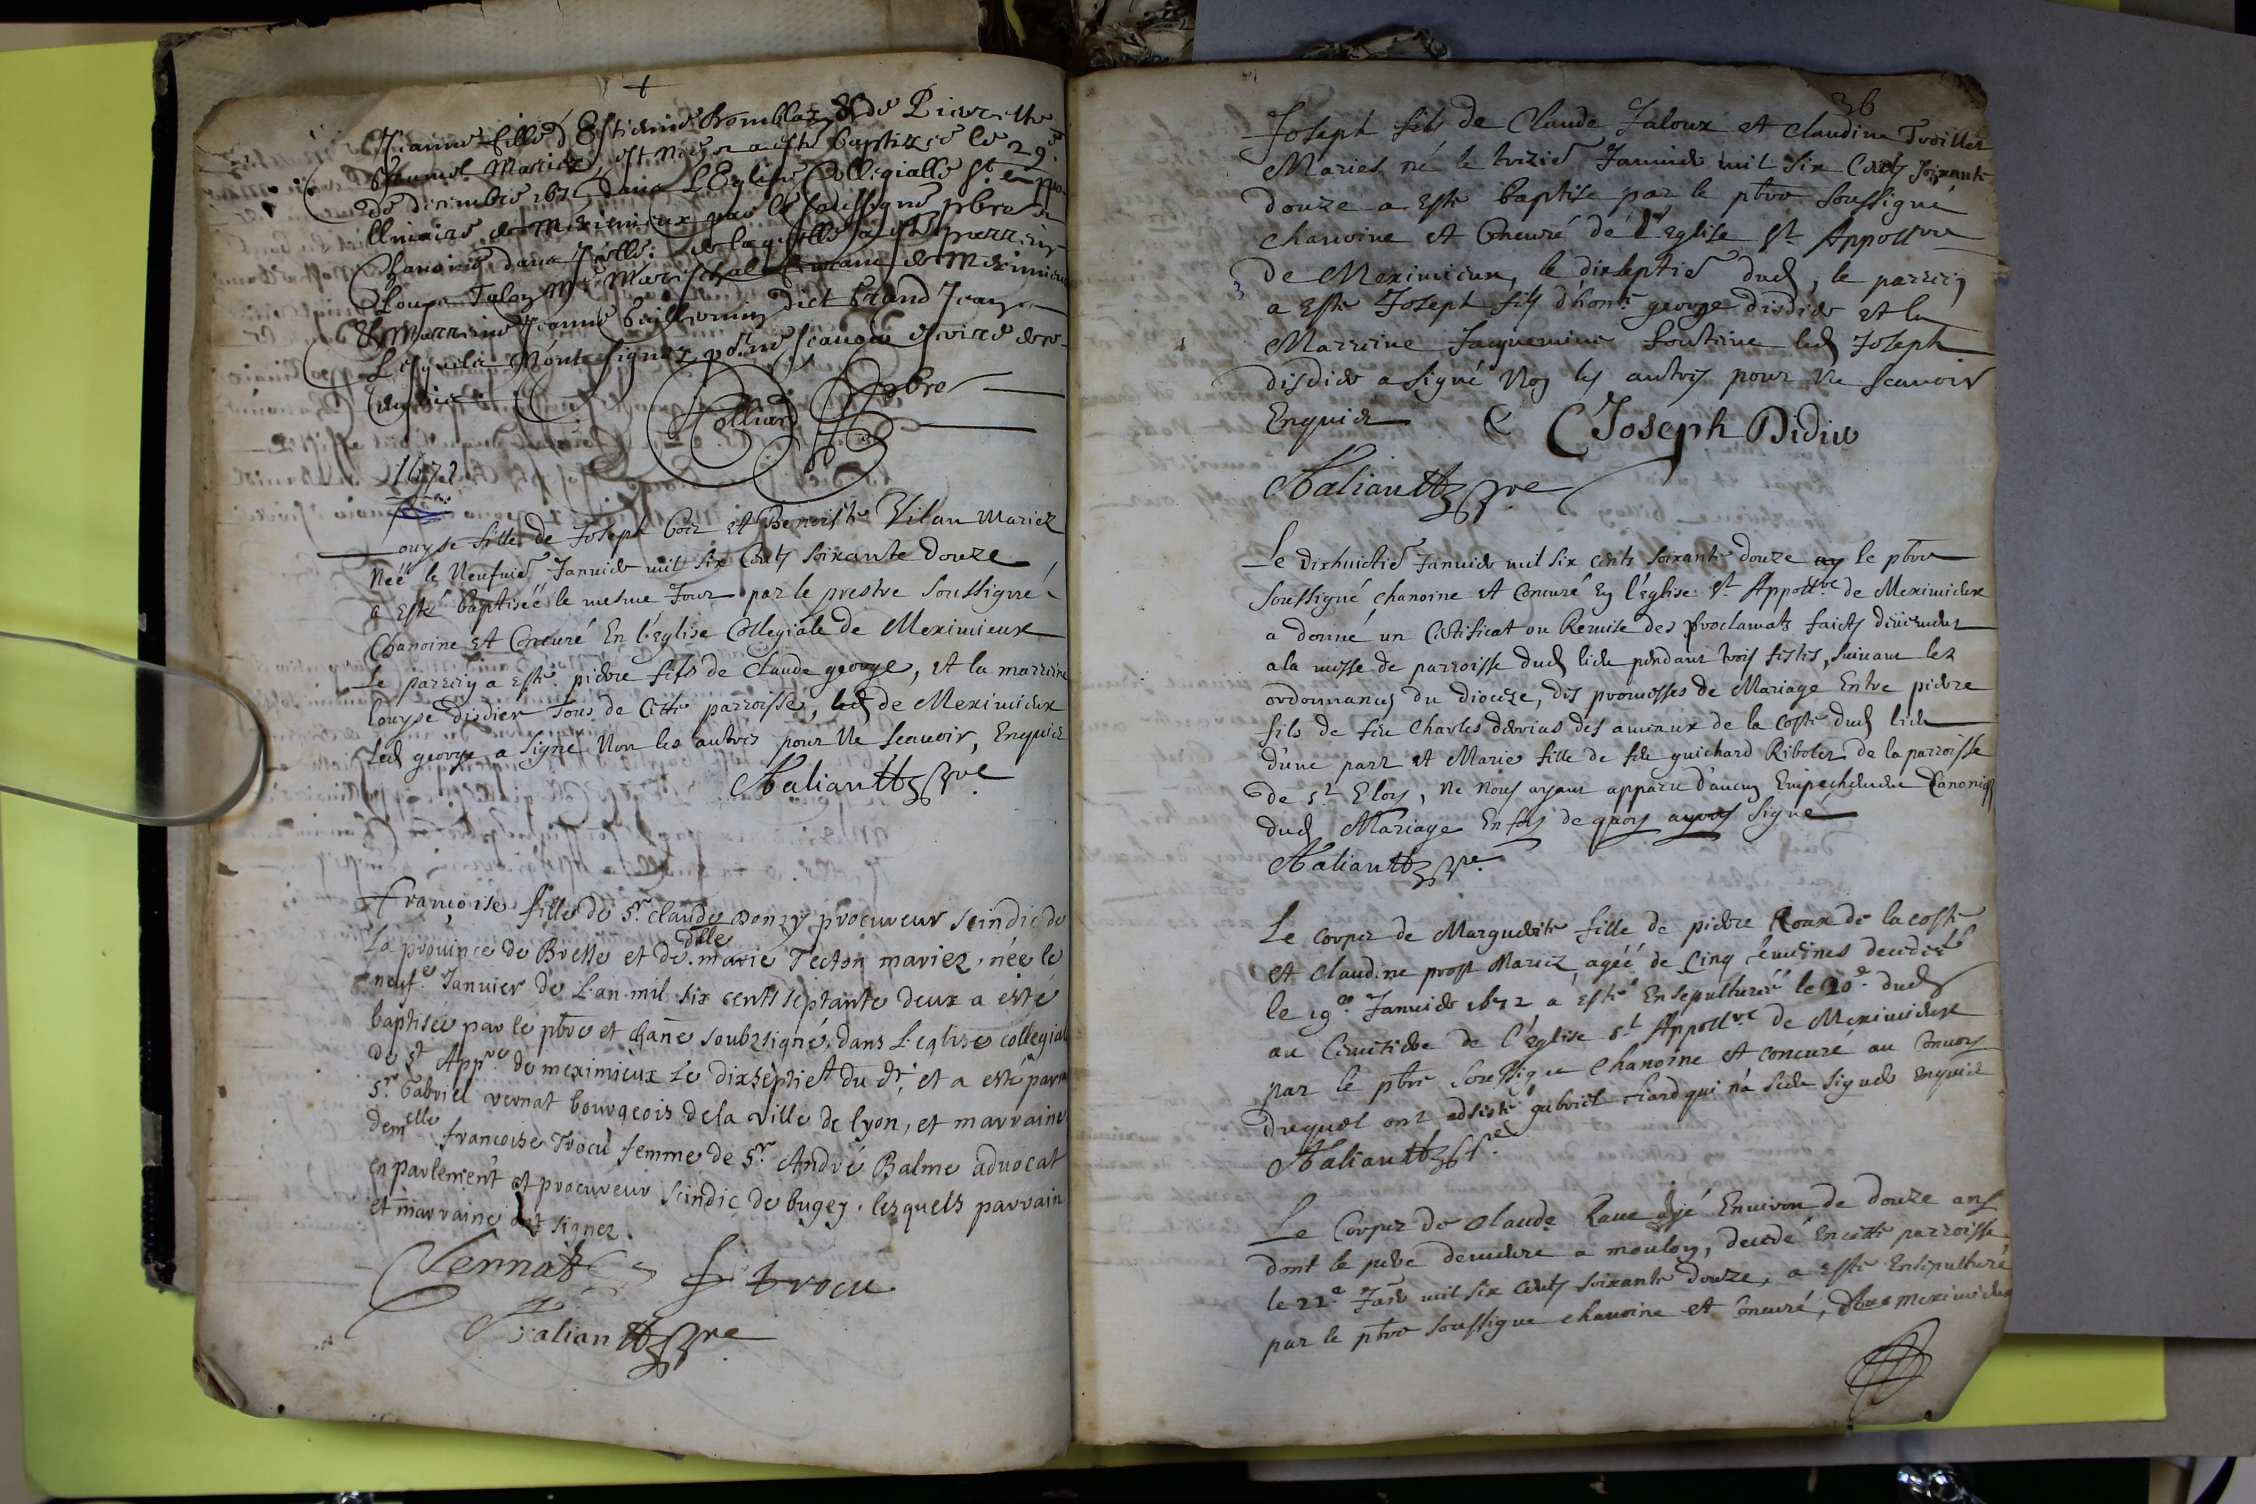 Jeanne fille d'Estienne & de Pierrette
Mariez, est née & a esté baptizée le 29e
de decembre 1671 dans L'Eglise Collegialle St
de Meximieux par le soubssigné pbre &
Chanoine dans Icelle: de laquelle a esté parrein
Loup Me Mareschal de Meximieux
& Marreine Jeanne dict Grand Jean
Lesquels n'ont signez pour ne scavoir escrire de ce
enquis
pbre
1672
Louyse fille de Joseph Et Benoiste Vilan Mariez
Néé le Neufvie Janvier mil six Cents soixante Douze
a Esté baptiséé le mesme Jour par le prestre soussigné
Chanoine Et Concuré En l'Eglise Collegiale de Meximieux
Le parrein a Esté pierre fils de Claude george, Et la marreine
louyse disdier Tous de Cette parroisse, de Meximieux
Led george a signé Non les autres pour Ne scavoir, Enquis
pbre
françoise fille de Sr. claude Donzy procureur scindic de
La province de Bresse et de dlle marie Tecton mariez, née le
neufe. Janvier de L'an mil six cents septante deux a esté
baptisée par le pbre et chañe soubzsigné, dans L'eglize collegial
de St Appre. de meximieux Le dixseptie du dt; et a esté parrain
Sr. Gabriel vernat bourgeois de la ville de lyon, et marraine
demelle francoise Trocu femme de Sr. André Balme advocat
en parlement et procureur scindic de bugey. lesquels parrain
et marraine ont signez.
Vernat f trocu
pbre
36
Joseph fils de Claude Jaloux et claudine
Mariés né le trezie Janvier mil six Cents soixante
douze a Esté baptisé par le pbre soussigné
chanoine et Concuré de l'Eglise St Appollre
de Meximieux, le dixseptie dud, le parrein
a Esté Joseph fils d'hone george disdier et la
Marreine Jaquemine led Joseph
disdier a signé Non les autres pour Ne scavoir
Enquis Joseph Didiu
pbre
Le dixhuictie Janvier mil six cents soixante douze le pbre
soussigné chanoine et Concuré En l'église St Appollre de Meximieux
a donné un Certificat ou Remise des proclamats faicts
a la messe de parroisse dud lieu pendant trois festes, suivant les
ordonnances du dioceze, des promesses de Mariage Entre pierre
fils de feu Charles des ameaux de la Coste dud lieu
d'une part et Marie fille de feu guichard Ribolet de la parroisse
de St Eloy, Ne Nous ayant apparu d'aucun Empechement Canoniq
dud Mariage En foy de quoy signé
pbre
Le corps de Marguerite fille de pierre Roux de la coste
et claudine prost Mariez, agéé de Cinq semeines decedéé
le 19e Janvier 1672 a Esté Ensepulturéé le 20e dud
au Cemetiere de l'Eglise St Appollre de Meximieux
par le pbre soussigne Chanoine et concuré au Convoy
duquel ont adsisté gabriel qui n'a sceu signer Enquis
pbre
Le Corps de Claude Rave agé Environ de douze ans
dont le pere demeure a moulon, decedé En cette parroisse
le 22e Janr mil six cents soixante douze, a Esté Ensepulturé
par le pbre soussigne chanoine et Concuré, Meximieux